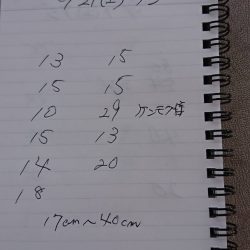 13 15
15 15
10 29
15 13
14 20
18
17cm~40cm